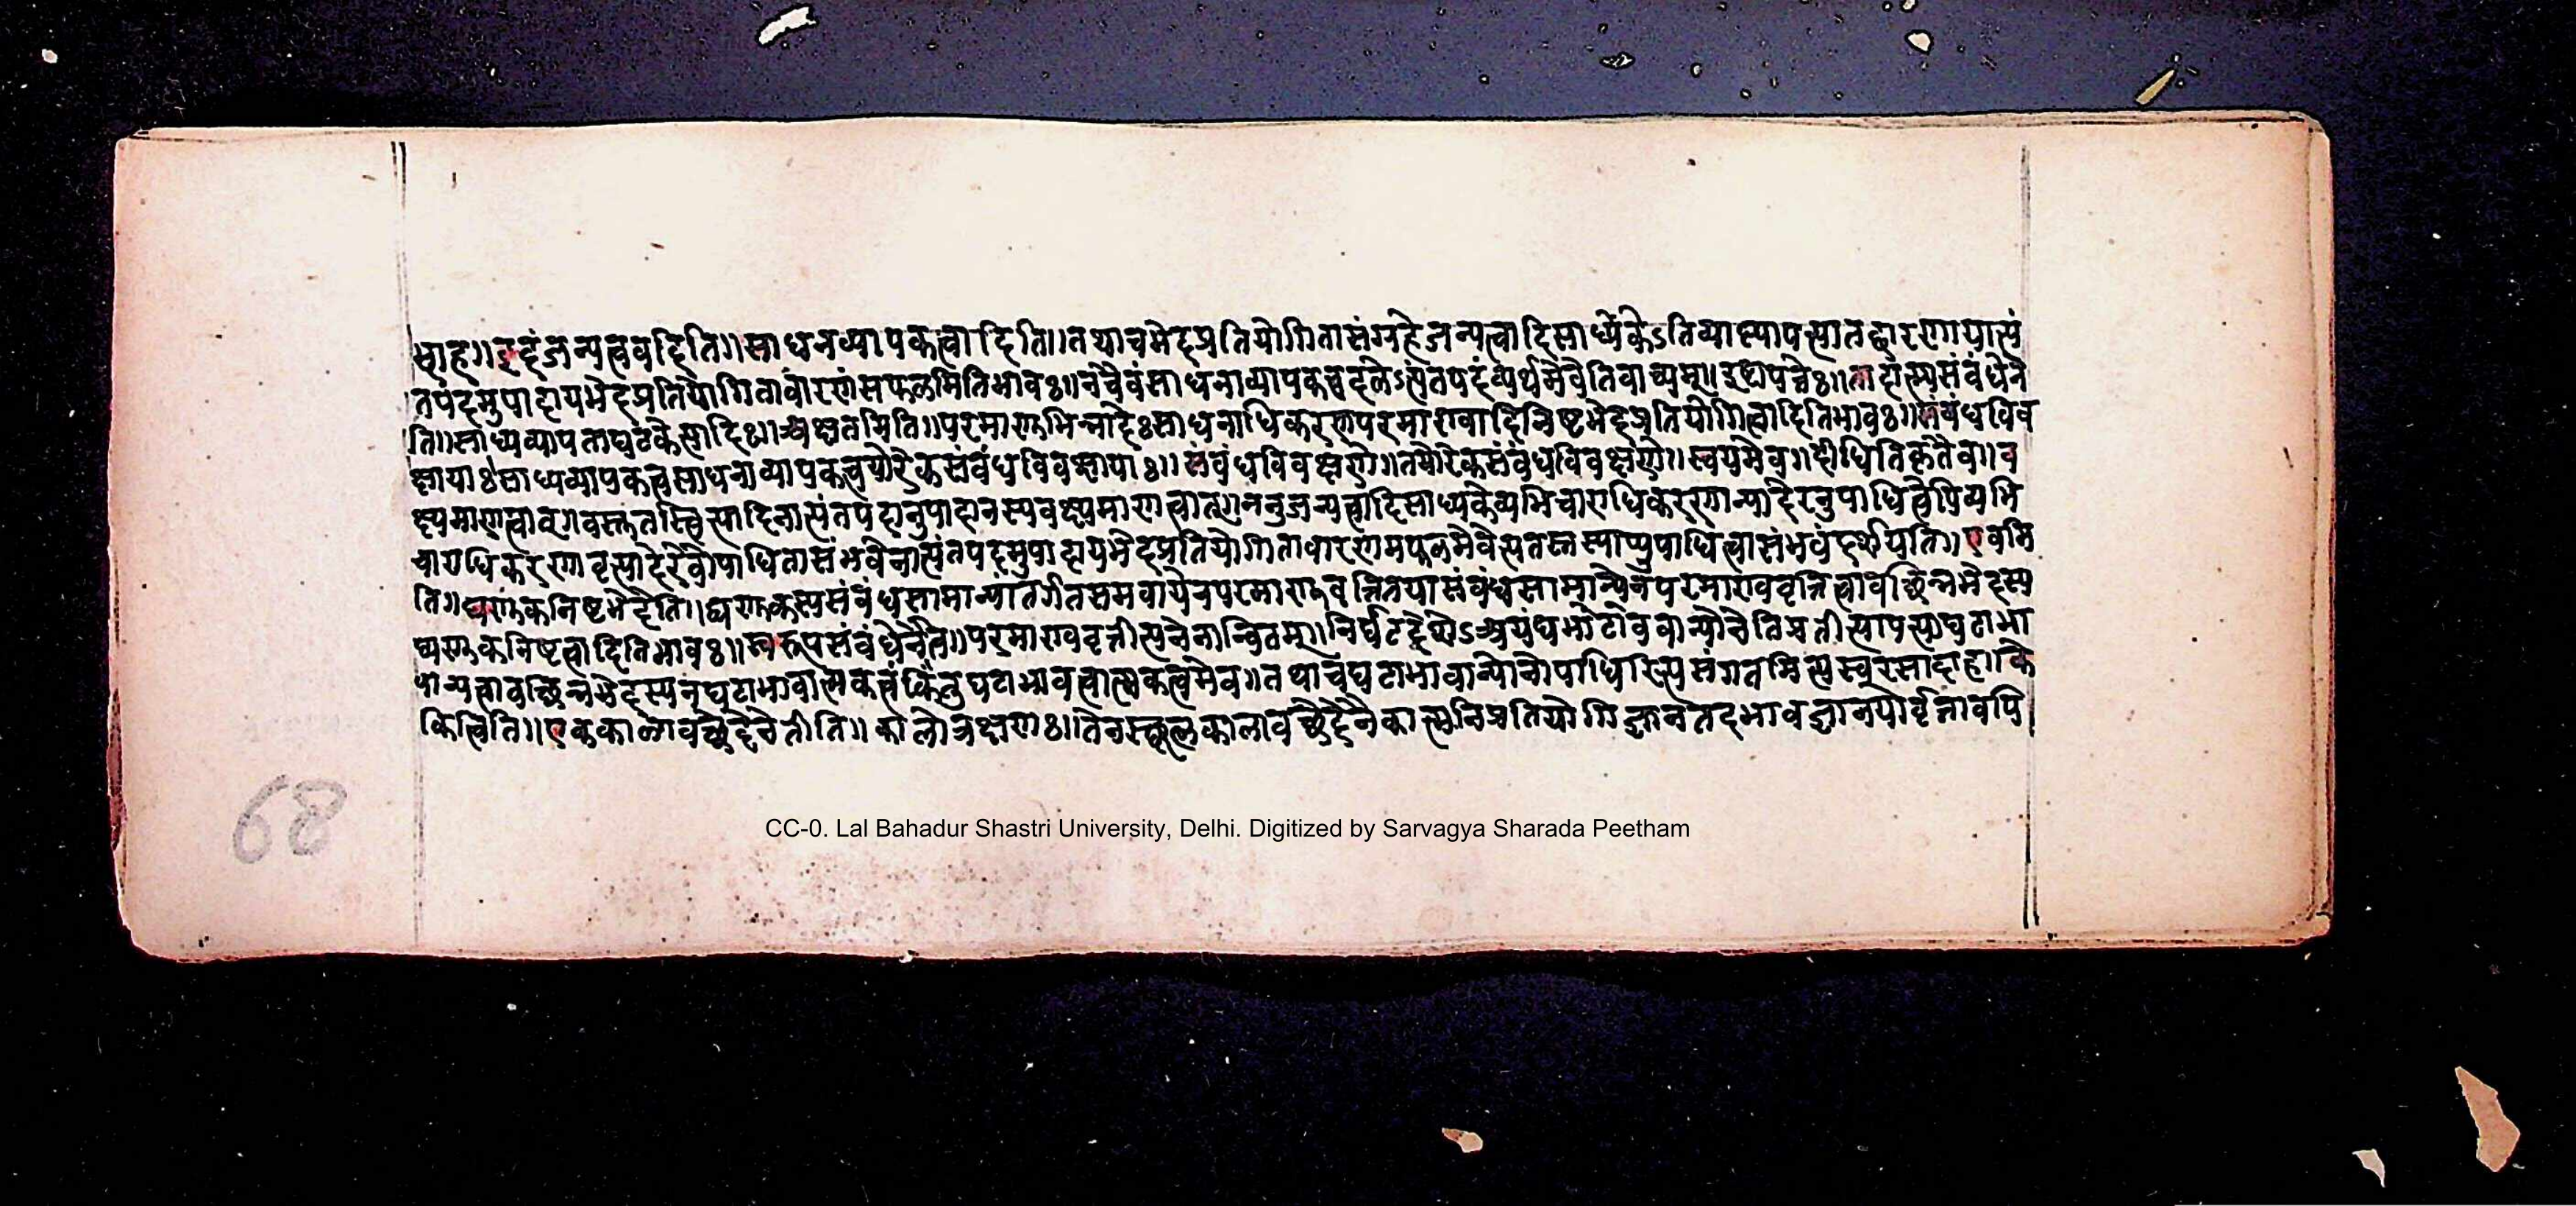 भाह॥इदंजन्यत्ववदिति॥साधनव्यापकत्वादिति॥तथाचभेदप्रतियोगितासंग्रहेजन्यत्वादिसाध्यकेऽतिव्याप्त्यापत्त्यातद्वारणायात्यं
तपदमुपादायभेदप्रतियोगितावारणंसफलमितिभावः॥नचैवंसाधनाव्यापकत्वदलेऽत्यंतपदंव्यर्थमेवेतिवाच्यम्॥इष्टापत्तेः॥तादात्म्यसंबंधेने
ति॥साध्यव्यापताघटकेत्यादिः॥अक्षतमिति॥परमाणुभिन्नादेःसाधनाधिकरणपरमाण्वादिनिष्टभेदप्रतियोगित्वादितिभावः॥संबंधविव
क्षायाःसाध्यव्यापकत्वसाधनाव्यापकत्वयोरेकसंबंधविवक्षायाः॥संबंधविवक्षणे॥तयोरेकसंबंधविवक्षणे॥स्वयमेव॥दीधितिकृतैव॥व
क्ष्यमाणत्वात्॥वस्तुतस्त्वित्यादिनात्यंतपदानुपादानस्यवक्ष्यमाणत्वात्॥ननुजन्यत्वादिसाध्यकेव्यभिचाराधिकरणान्यादेरनुपाधित्वेपिव्यभि
चाराधिकरणावृत्त्यादेरेवोपाधितासंभवेनात्यंतपदमुपादायभेदप्रतियोगितावारणमफलमेवेत्यतस्तस्याप्युपाधित्वासंभवंदर्शयति॥एवमि
ति॥द्व्यणुकनिष्टभेदेति॥द्व्यणुकस्यसंबंधसामान्यांतर्गतसमवायेनपरमाणुवृत्तितयासंबंधसामान्येनपरमाण्ववृत्तित्वावच्छिन्नभेदस्य
द्व्यणुकनिष्टत्वादितिभावः॥स्वरूपसंबंधेनेति॥परमाण्ववृत्तीत्यनेनान्वितम्॥निर्घटदेशेऽअयंघटाभाववान्योनेतिप्रतीत्यापत्त्याघटाभा
वान्यत्वावच्छिन्नभेदस्यनघटाभावात्मकत्वंकिंतुघटाभावत्वात्मकत्वमेव॥तथाचघटाभावान्योनोपाधिरित्यसंगतमित्यस्वरसादाह॥किं
किंत्विति॥एककालावच्छेदेनेतीति॥कालोत्रक्षणः॥तेनस्थूलकालावच्छेदेनैकात्मनिप्रतियोगिज्ञानतदभावज्ञानयोर्वृत्तावपि
68
CC-0. Lal Bahadur Shastri University, Delhi. Digitized by Sarvagya Sharada Peetham